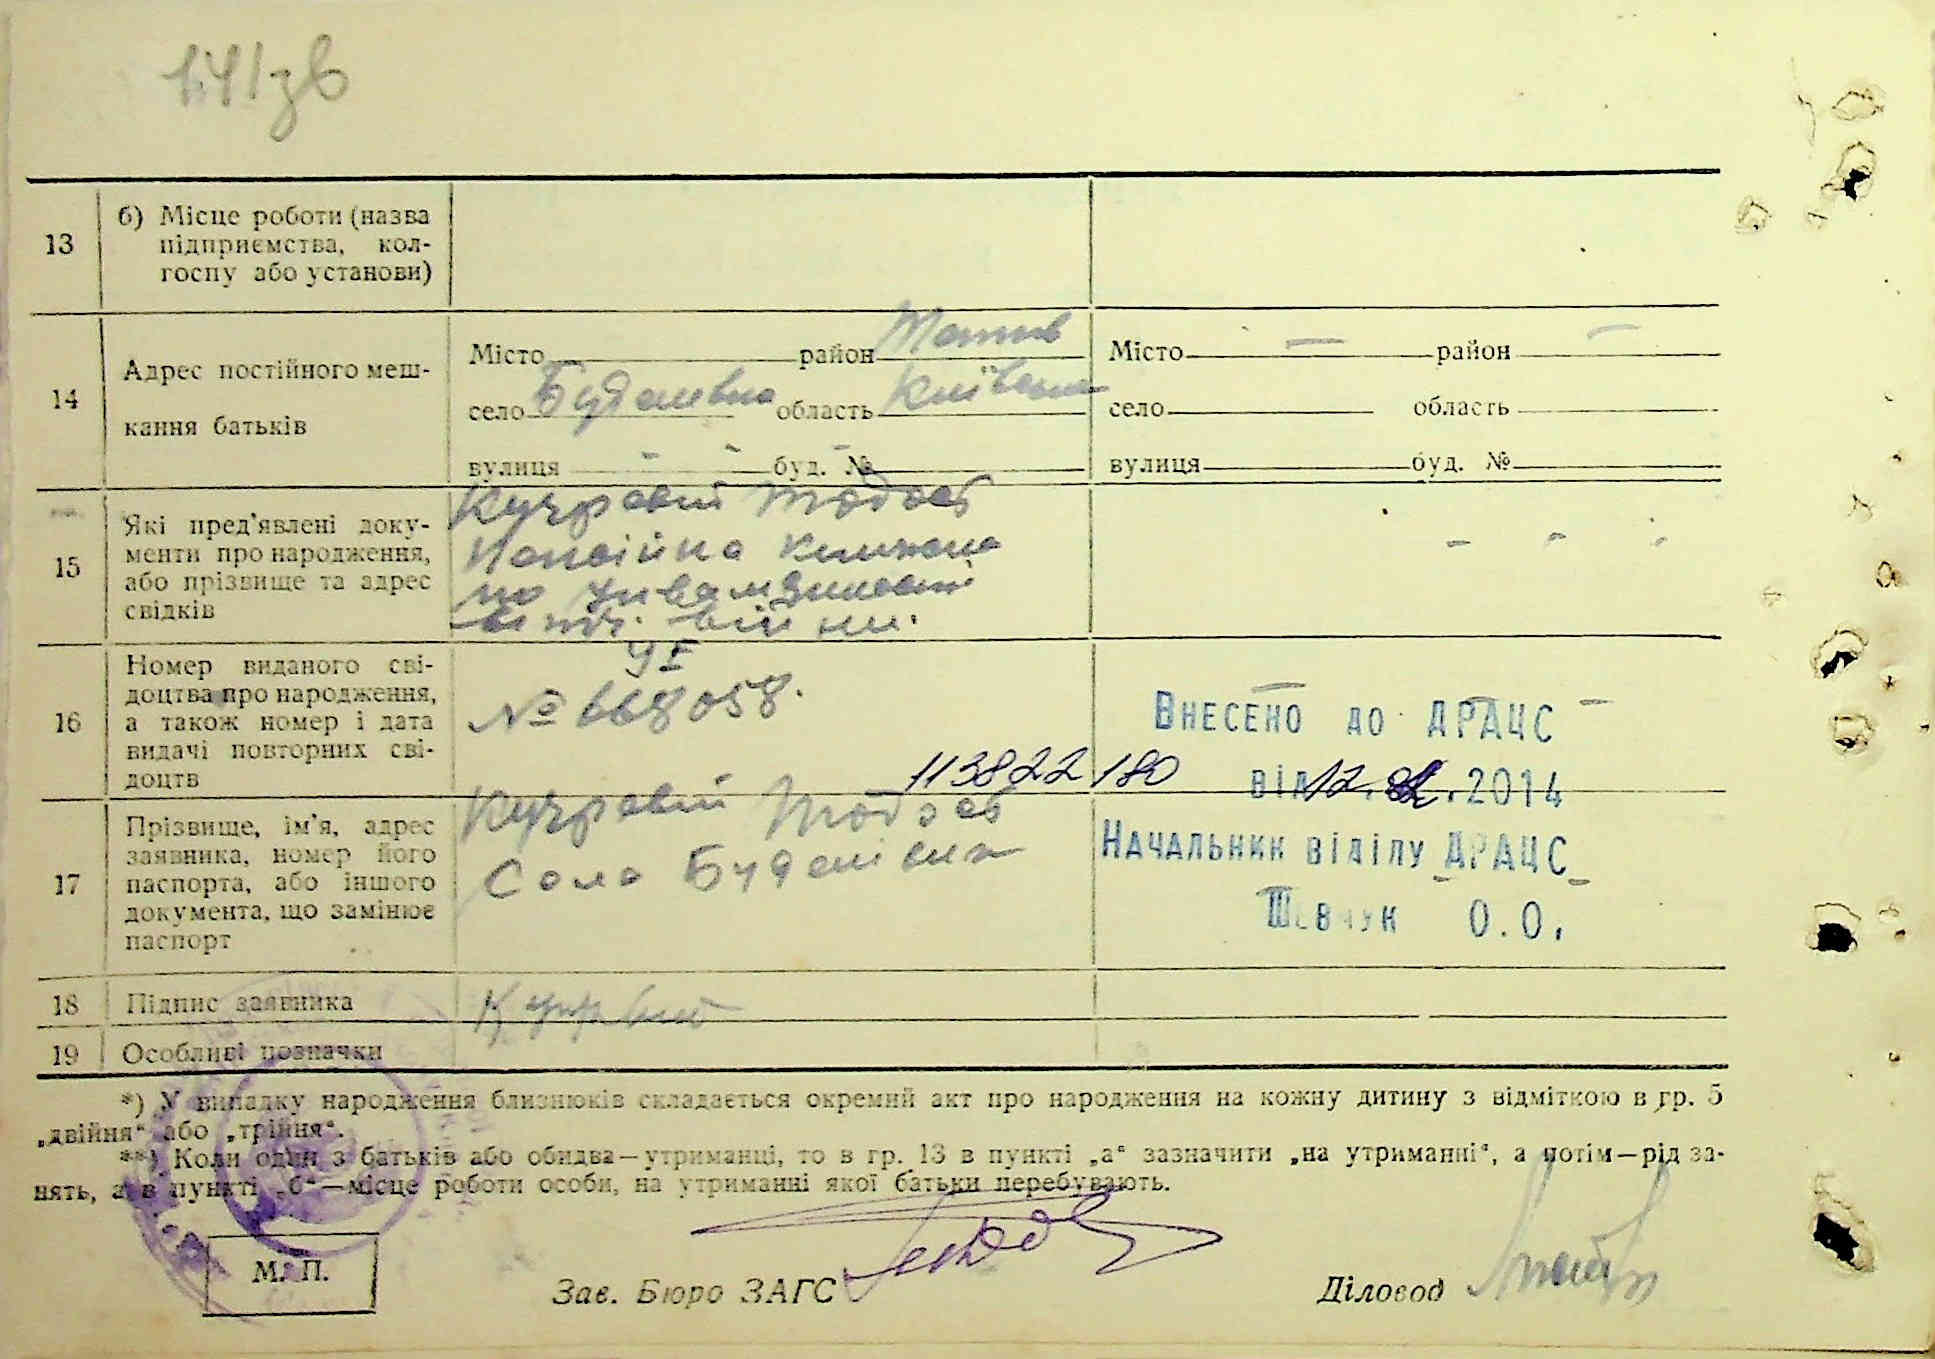 141зв
13
б) Місце роботи (назва
підприємства, кол-
госпу або установи)
14
Адрес постійного меш-
кання батьків
Місто район
село область Київська
вулиця - - буд. №
Місто — район —
село область
вулиця буд. №
15
Які пред'явлені доку-
менти про народження,
або прізвище та адрес
свідків
Кучрявий
Пенсійна книжка
по
війни.
16
Номер виданого сві-
доцтва про народження,
а також номер і дата
видачі повторних сві-
доцтв
УІ
№ 668058.
113822180
Внесено до ДРАЦС
від 12. .2014
Начальник відділу ДРАЦС
Шевчук О.О.
17
Прізвище, ім'я, адрес
заявника, номер його
паспорта, або іншого
документа, що замінює
паспорт
Кучрявий
Село
18
Підпис заявника
19
Особливі позначки
*) У випадку народження близнюків складається окремий акт про народження на кожну дитину з відміткою в гр. 5
„двійня“ або „трійня“.
**) Коли один з батьків або обидва—утриманці, то в гр. 13 в пункті „а“ зазначити „на утриманні“, а потім—рід за-
нять, а в пункті „б“—місце роботи особи, на утриманні якої батьки перебувають.
М. П.
Зав. Бюро ЗАГС
Діловод